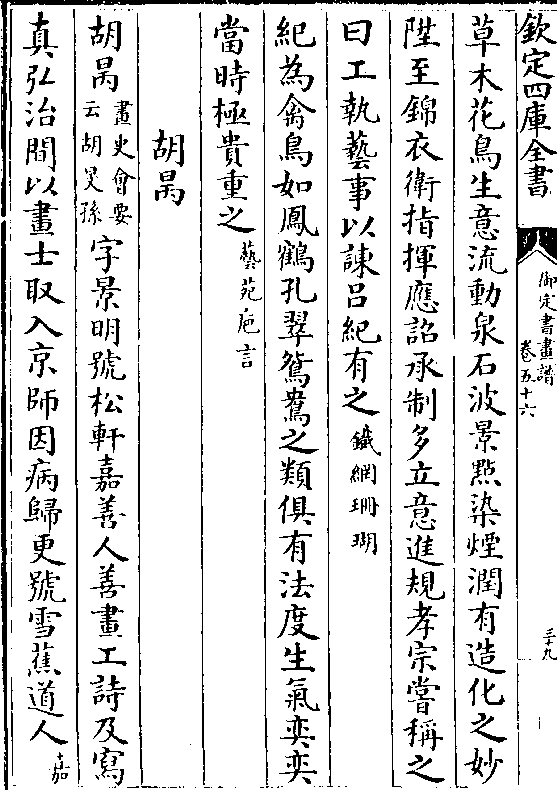 欽定四庫全書
御定書畫譜
卷五十六
三十九
草木花鳥生意流動泉石波景㸃染煙潤有造化之妙
陞至錦衣衛指揮應詔承制多立意進規孝宗嘗稱之
曰工執藝事以諫吕紀有之鐵網珊瑚
紀為禽鳥如鳳鶴孔翠鴛鴦之類俱有法度生氣奕奕
當時極貴重之藝苑巵言
胡㫤
胡㫤畫史會要云胡旲孫字景明號松軒嘉善人善畫工詩及寫
真弘治間以畫士取入京師因病歸更號雪蕉道人嘉